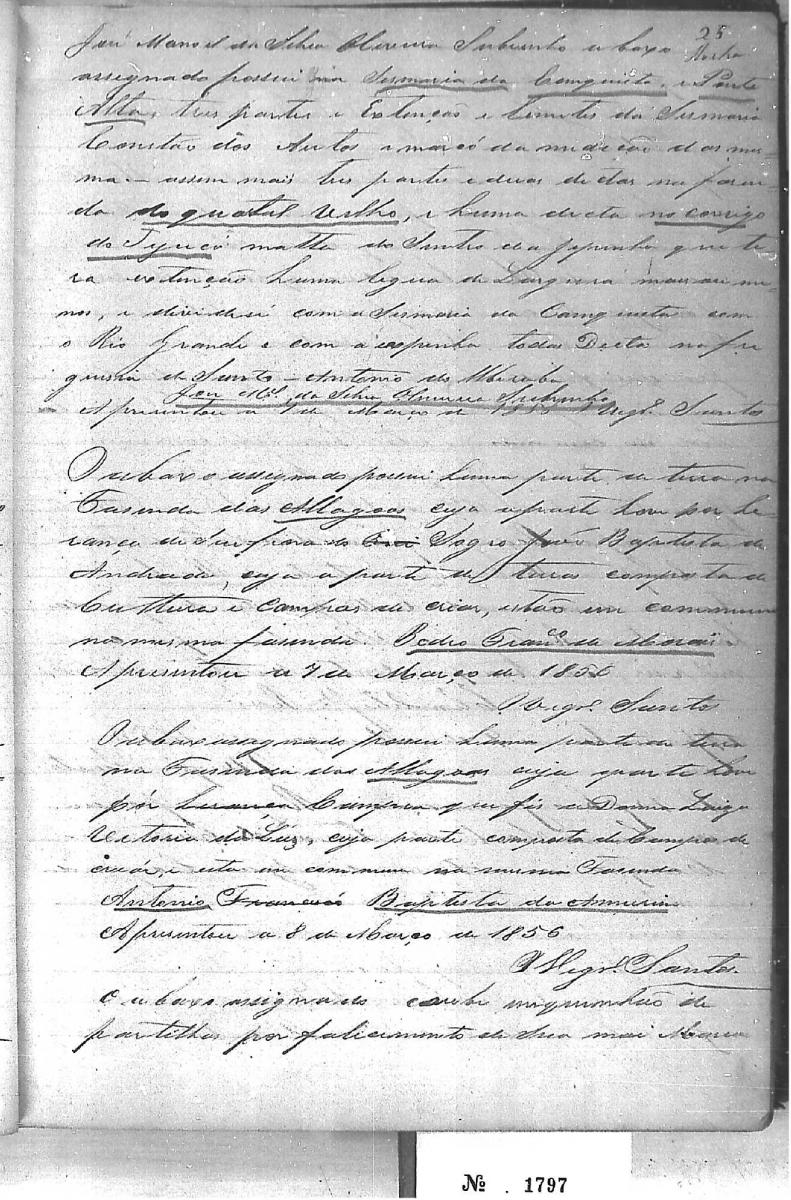 25
José Manoel da Silva Oliveira Subrinho abaxo
assegnado possui na Sesmaria da Conquista, e Ponte
Alta, tres partes e Extenção e Limites da Sesmaria
Constão dos Autos e marcó da midição da mes-
ma — assim mais tres partes e duas dictas na fasen-
da do quatal Velho, e huma dicta no corrigo
do Tijucó matta do Sentro da que te
ra extenção huma legua de Largura mais ou me-
nos, e devide si com a Sesmaria da Conquista com
o Rio Grande e com a espinha todas Dictas na fre
guesia de Santo Antonio do Uberaba
José Mel. da Silva Oliveira Subrinho
Apresentou a 7 de Março de 1856 Vigrº. Santos
O abaxo assignado possui huma parte de terra na
Fasenda das Allagoas cuja aparte hove por he
rança de Seu Sogro José Baptista de
Andrade, cuja a parte de terras composta de
Cultura e Campos de criar, estão em commum
na mesma fasenda. Pedro Francº. de Morais
Apresentou a 7 de Março de 1856
Vigrº. Santos
O abaxo assignado possui huma parte de terra
na Fasenda das Allagoas cuja aparte hove
pór Compra que fis a Donna
Vitoria da Luz, cuja parte composta de Campos de
criár, e esta em commum na mesma Fasenda
Antonio Francisco Baptista de
Apresentou a 8 de Março de 1856
Vigrº. Santos
O abaxo assignado coube im quinhão de
partilhas por falicimento de Sua mai Maria
Nº . 1797